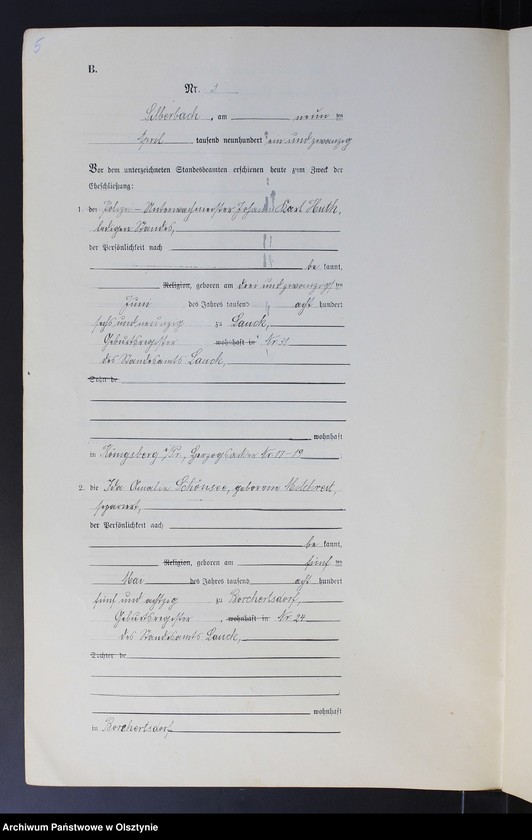 5
B.
Nr. 3
Silberbach, am neun ten
April tausend neunhundert ein und zwanzig
Vor dem unterzeichneten Standesbeamten erschienen heute zum Zweck der
Eheschließung:
1. der Polizei-Unterwachmeister Johann Karl Huth,
ledigen Standes,
der Persönlichkeit nach
be kannt,
Religion, geboren am drei und zwanzigsten
Juni des Jahres tausend acht hundert
sechs und neunzig zu Lauck,
Geburtsregister wohnhaft in Nr 31
des Standesamts Lauck,
Sohn de
wohnhaft
in Königsberg i/Pr., Herzogsacker Nr 17-19
2. die Ida Amalie Schönsee, geborene
separiert,
der Persönlichkeit nach
be kannt,
Religion, geboren am fünf ten
Mai des Jahres tausend acht hundert
fünf und achtzig zu Borchertsdorf,
Geburtsregister, wohnhaft in Nr 24
des Standesamts Lauck,
Tochter de
wohnhaft
in Borchertsdorf
Archiwum Państwowe w Olsztynie